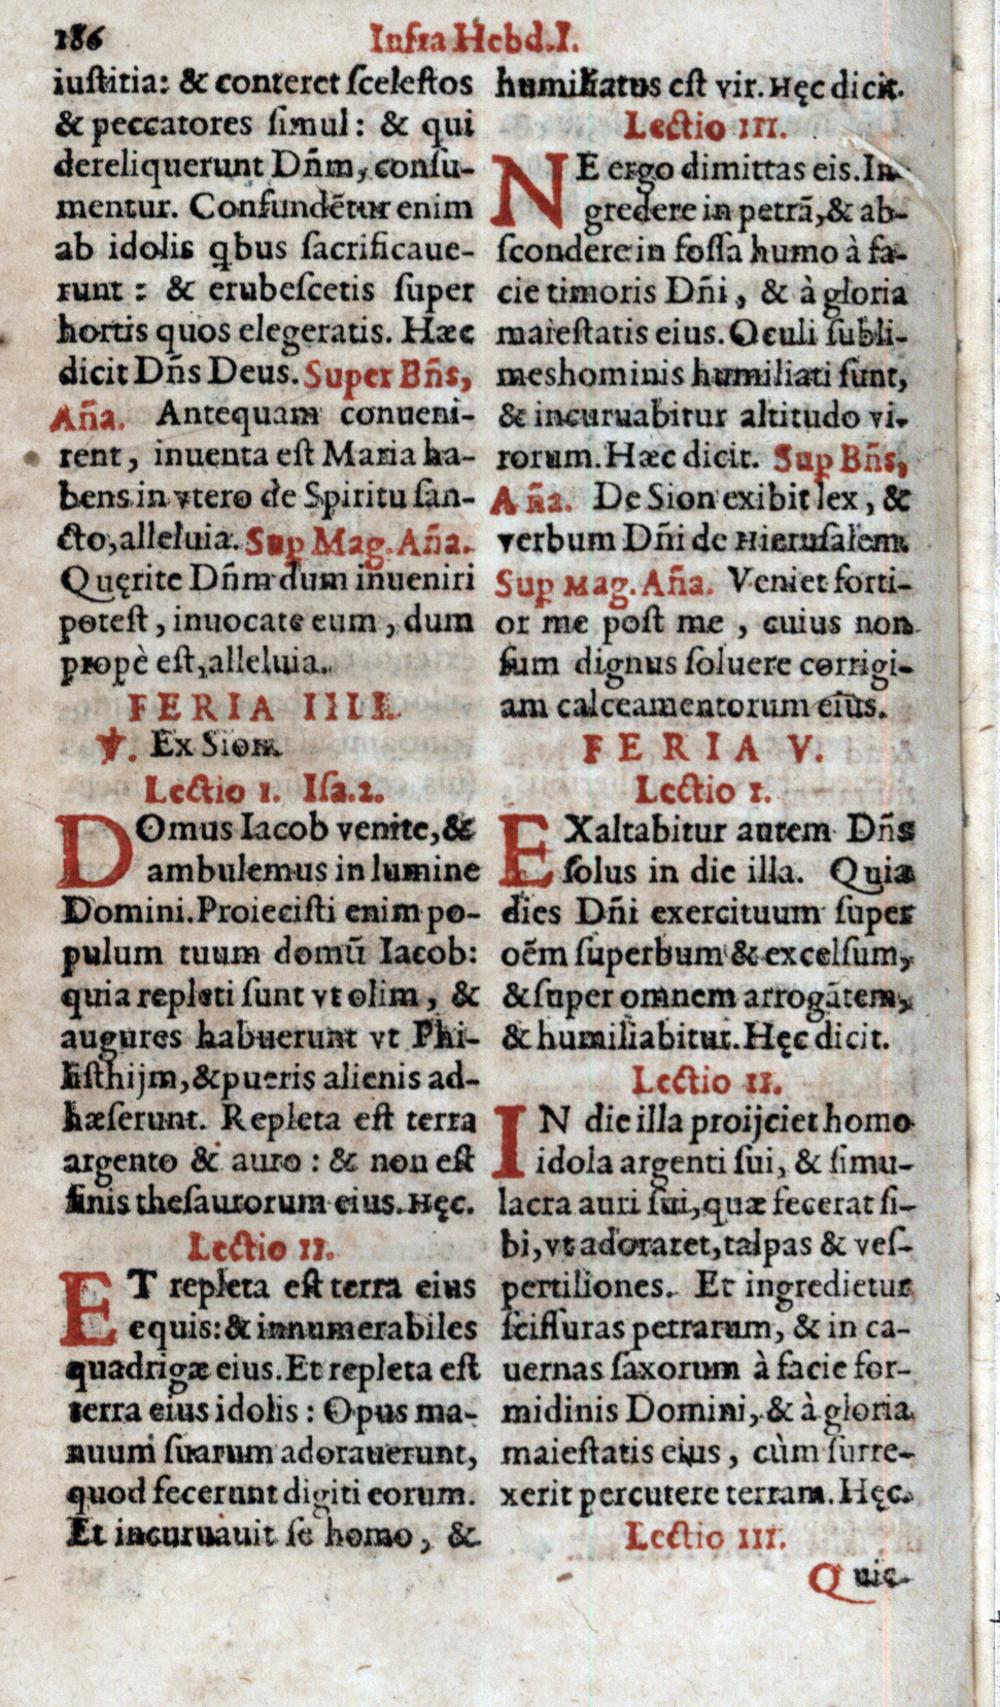 186
Infra Hebd.I.
iuſtitia: & conteret ſceleſtos
& peccatores ſimul: & qui
dereliquerunt Dñm, conſu-
mentur. Confundẽtur enim
ab idolis qbus ſacrificaue-
runt: & erubeſcetis ſuper
hortis quos elegeratis. Hæc
dicit Dñs Deus. Super Bñs,
Aña. Antequam conueni-
rent, inuenta eſt Maria ha-
bens in vtero de Spiritu ſan-
cto, alleluia. Sup Mag. Aña.
Quęrite Dñm dum inueniri
poteſt, inuocate eum, dum
propè eſt, alleluia.
FERIA IIII.
℣. Ex Sion.
Lectio I. Iſa.2.
DOmus Iacob venite, &
ambulemus in lumine
Domini. Proieciſti enim po-
pulum tuum domũ Iacob:
quia repleti ſunt vt olim, &
augures habuerunt vt Phi-
liſthijm, & pueris alienis ad-
hæſerunt. Repleta eſt terra
argento & auro: & non eſt
finis theſaurorum eius. Hęc.
Lectio II.
ET repleta eſt terra eius
equis: & innumerabiles
quadrigæ eius. Et repleta eſt
terra eius idolis: Opus ma-
nuum ſuarum adorauerunt,
quod fecerunt digiti eorum.
Et incuruauit ſe homo, &
humiliatus eſt vir. Hęc dicit.
Lectio III.
NE ergo dimittas eis. In-
gredere in petrã, & ab-
ſcondere in foſſa humo à fa-
cie timoris Dñi, & à gloria
maieſtatis eius. Oculi ſubli-
mes hominis humiliati ſunt,
& incuruabitur altitudo vi-
rorum. Hæc dicit. Sup Bñs,
Aña. De Sion exibit lex, &
verbum Dñi de Hieruſalem.
Sup Mag. Aña. Veniet forti-
or me poſt me, cuius non
ſum dignus ſoluere corrigi-
am calceamentorum eius.
FERIA V.
Lectio I.
EXaltabitur autem Dñs
ſolus in die illa. Quia
dies Dñi exercituum ſuper
oẽm ſuperbum & excelſum,
& ſuper omnem arrogãtem,
& humiliabitur. Hęc dicit.
Lectio II.
IN die illa proijciet homo
idola argenti ſui, & ſimu-
lacra auri ſui, quæ fecerat ſi-
bi, vt adoraret, talpas & veſ-
pertiliones. Et ingredietur
ſciſſuras petrarum, & in ca-
uernas ſaxorum à facie for-
midinis Domini, & à gloria
maieſtatis eius, cùm ſurre-
xerit percutere terram. Hęc.
Lectio III.
Quie-